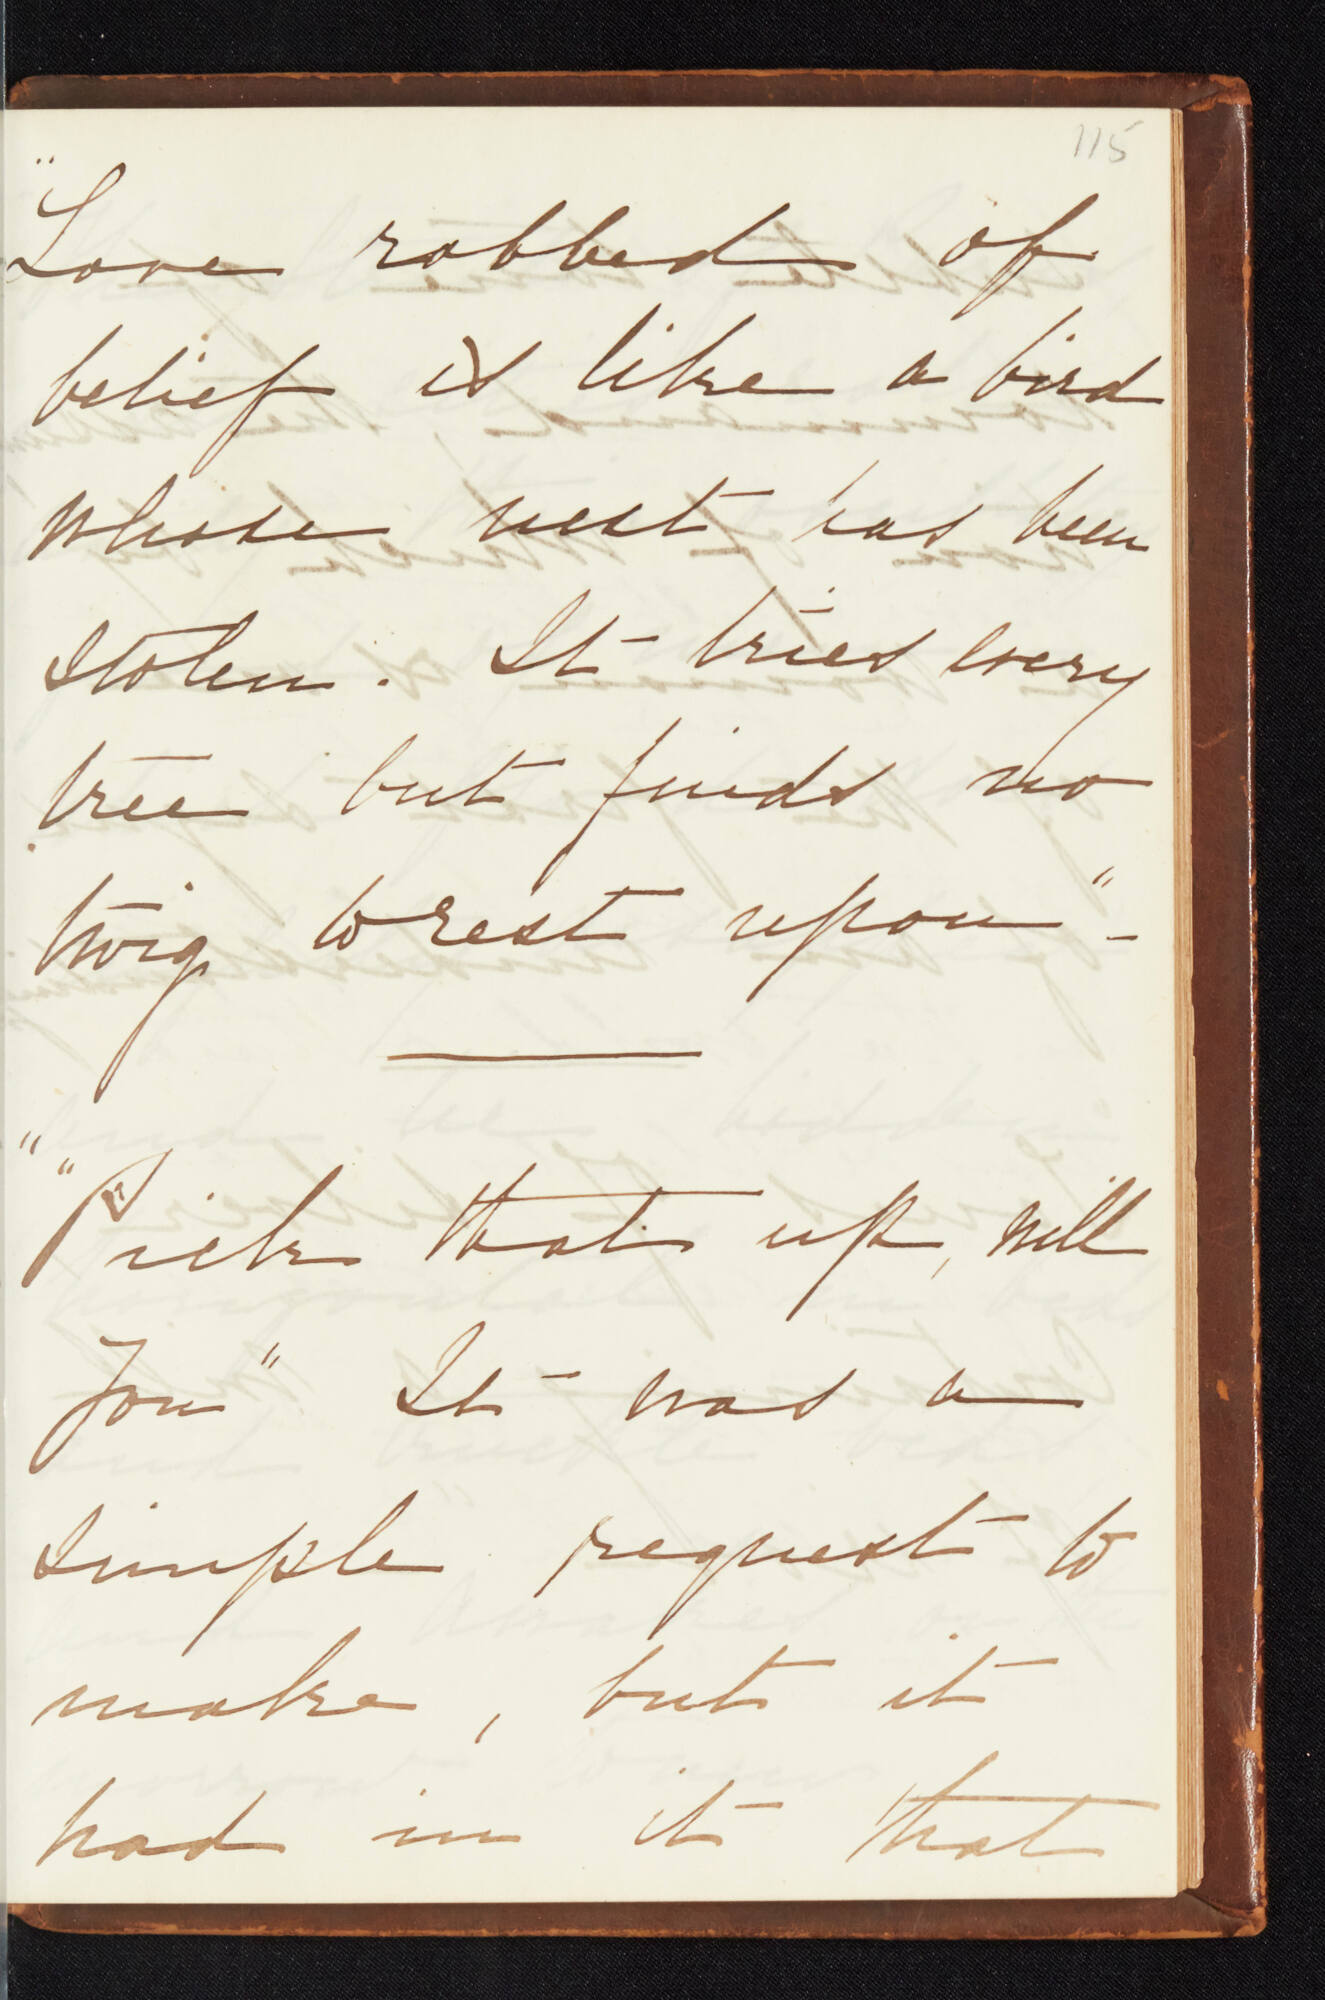 115
"Love robbed of
belief is like a bird
whose nest has been
stolen. It tries every
tree but finds no
twig to rest upon" -
" "Pick that up, will
you" It was a
simple request to
make, but it
had in it that